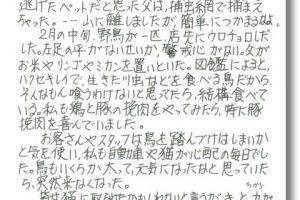 逃げたペットだと思った父は、捕虫網で捕まえ
ちゃった。…山に離しましたが、簡単につかまるよ。
2月の中旬、野鳥が一匹、店先にウロチョロして
いた。左足の平がないせいか、警戒心がない。父が
お米やリンゴやミカンを置いといた。図鑑によると、
ハクセキレイで、生きた虫などを食べる鳥だから、
そんなもん喰うわけないと思ってたら、結構食べて
いる。私も鶏と豚の挽肉をやってみたら、特に豚
挽肉を喜んでいました。
お客さんやスタッフは鳥を踏んづけはしまいか
と気を使い、私も自動車や猫が心配の毎日でし
た。鳥もいくらか太って、元気になったなと思ってい
たら、突然来なくなった。
猫に取られたかもしれないと言うがきと、力が